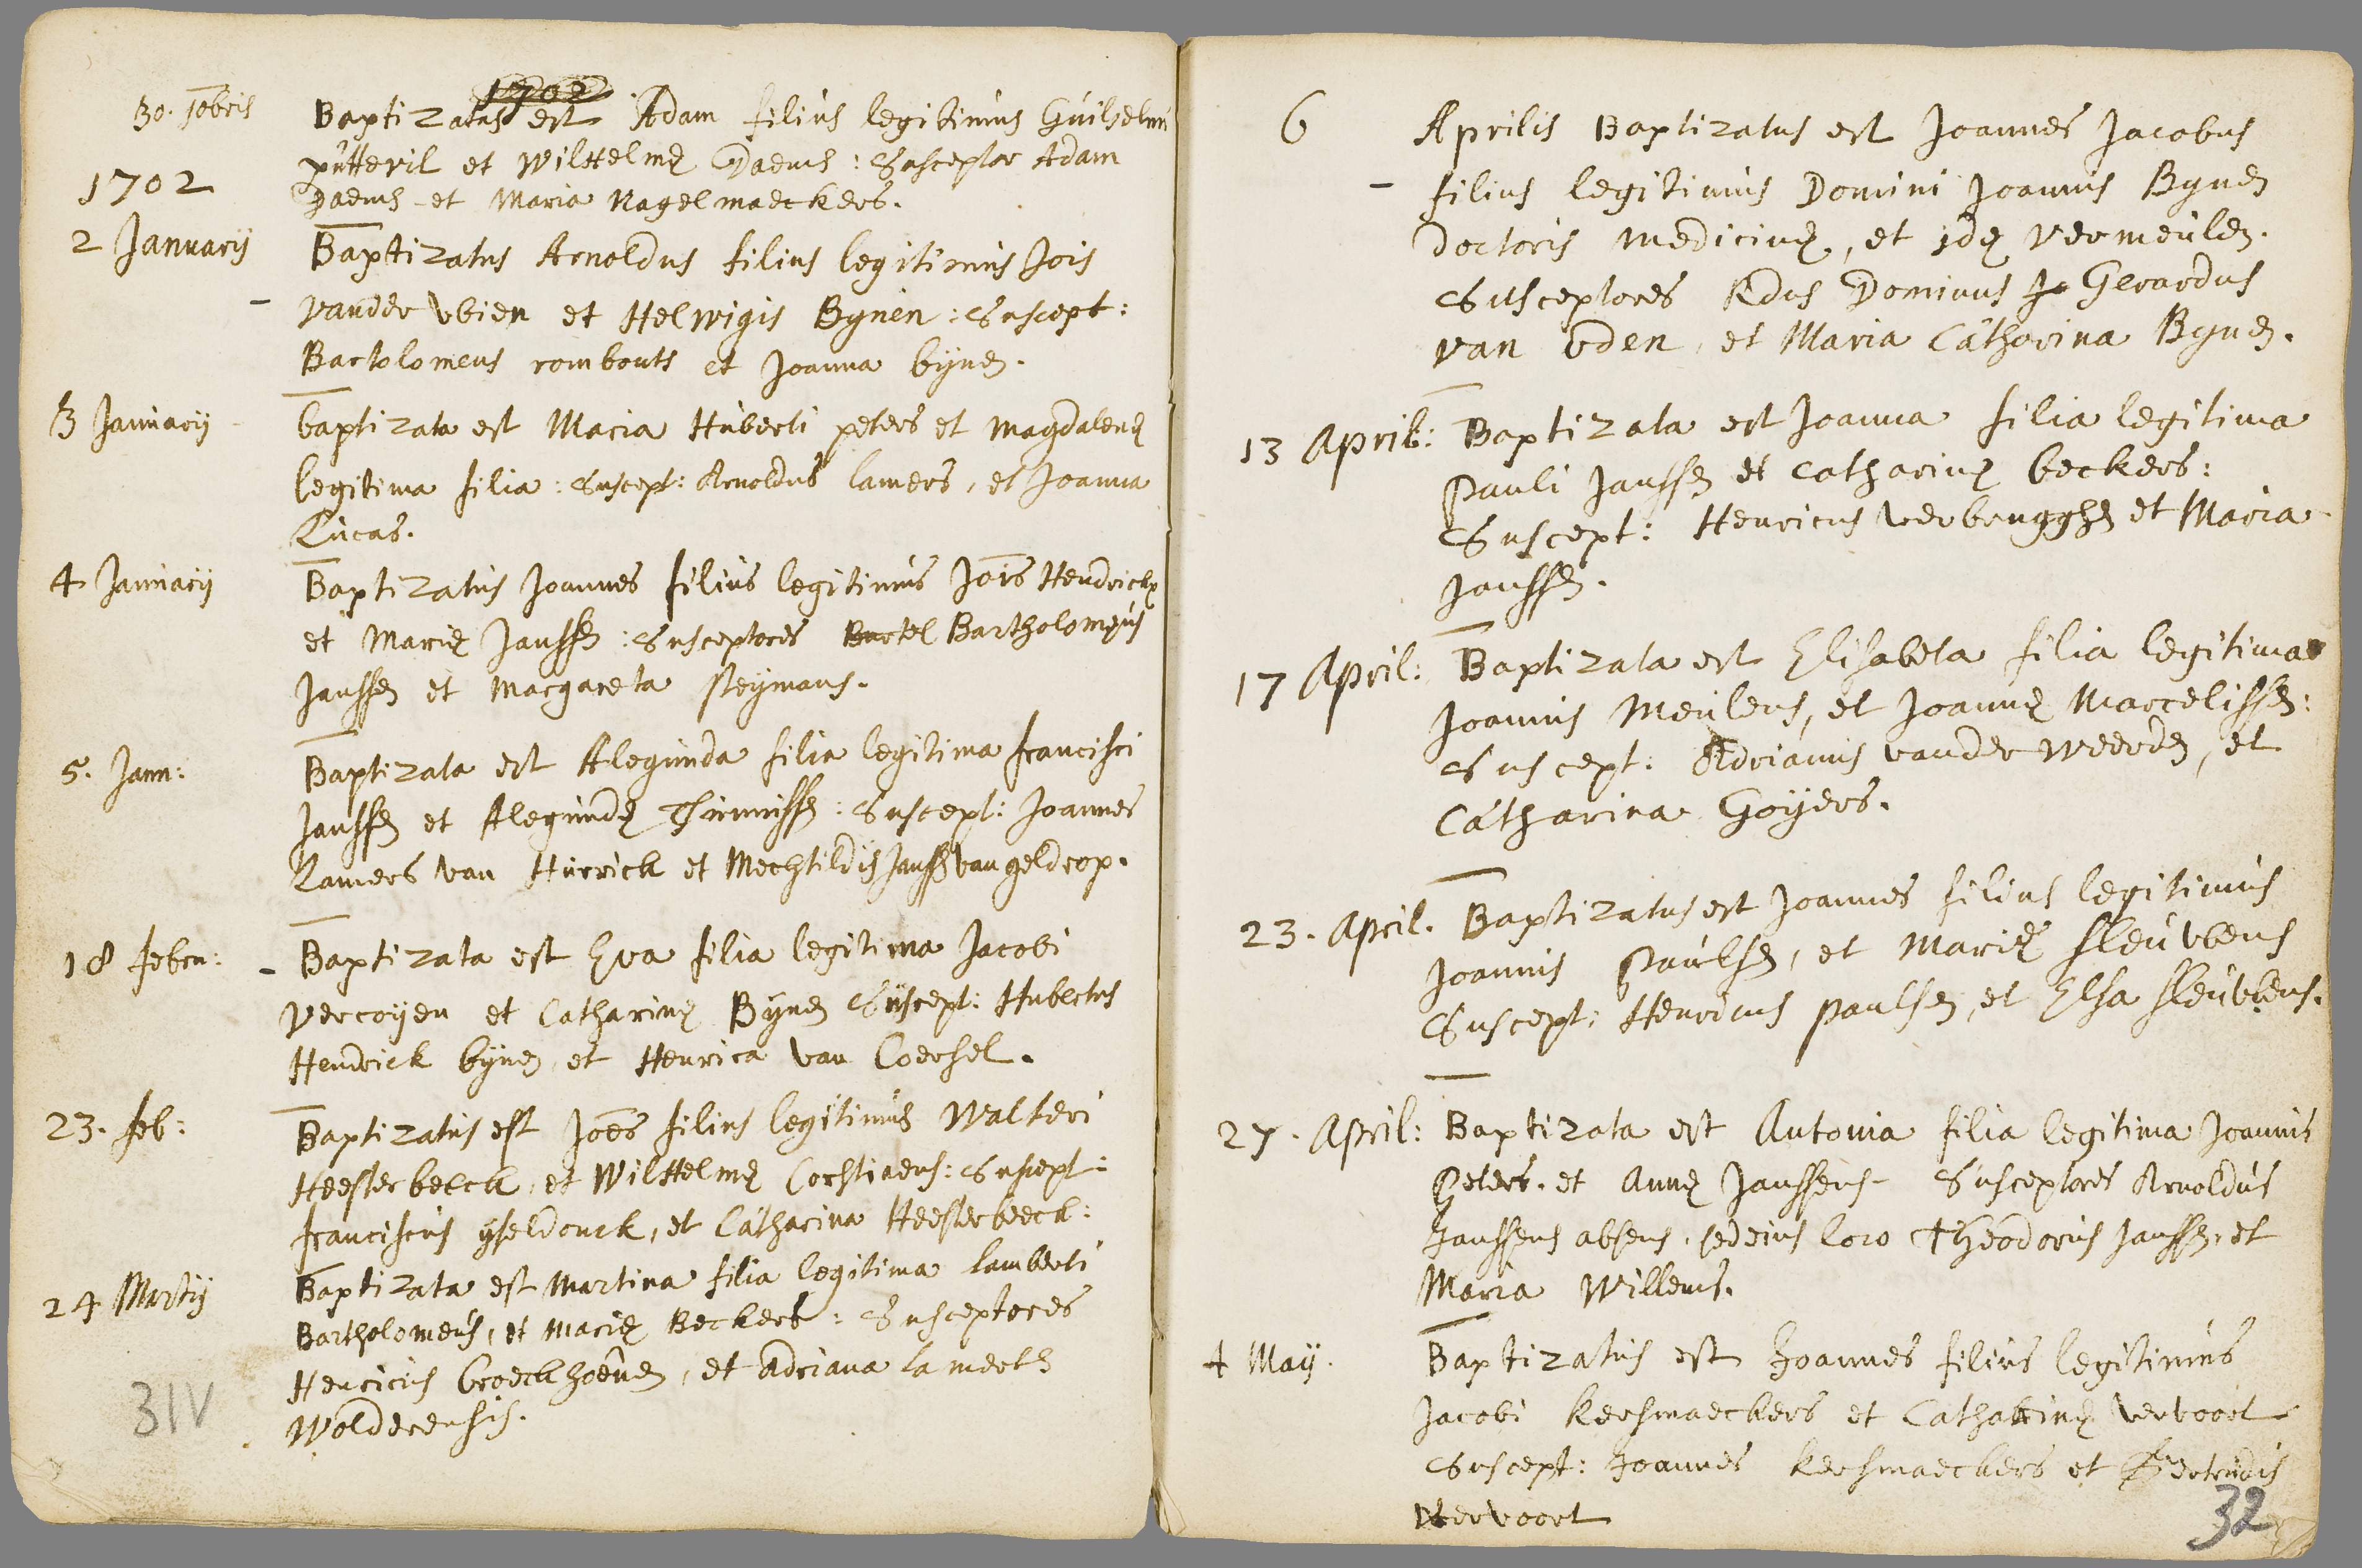 1702
30. Xbris Baptizatus est Adam filius legitimus Guilhelmi
putteril et Wilhelmę Daems: Susceptor Adam
1702
Daems et Maria Nagelmaeckers.
2 Januarij Baptizatus Arnoldus filius legitimus Jois
- vander Vbien et Helwigis Bynen: Suscept:
Bartolomeus rombouts et Joanna bijnen.
3 Januarij baptizata est Maria Huberti peters et magdalenę
legitima filia: Suscept: Arnoldus lamers, et Joanna
Lucas.
4 Januarij Baptizatus Joannes filius legitimus Jois Hendrickx
et Marię Janssen: Susceptores Bartel Bartholomęus
Janssen et Margareta steymans.
5. Janu: Baptizata est Alegunda filia legitima francisci
Janssen et Alegundę Thunissen: Suscept: Joannes
Lamers van Hurrick et Mechtildis Janssen van geldrop.
18 febru: - Baptizata est Eva filia legitima Jacobi
Vercoyen et Catharinę Bijnen Suscept: Hubertus
Hendrick bijnen, et Henrica van Coersel.
23. feb: Baptizatus est Joēs filius legitimus Walteri
Heesterbeeck, et Wilhelmę Corstiaens: Suscept:
franciscus ijseldonck, et Catharina Heesterbeeck:
24 Martij Baptizata est Martina filia legitima lamberti
Bartholomeus, et Marię Beckers: Susceptores
Henricus broeckhoven, et Adriana la
31V
6 Aprilis Baptizatus est Joannes Jacobus
- filius legitimus Domini Joannis Bynen
doctoris medicinę, et idę Vermeulen.
Susceptores Rdus Dominus Jo Gerardus
van Vden, et Maria Catharina Bynen.
13 April: Baptizata est Joanna filia legitima
Pauli Janssen et Catharinę beckers:
Suscept: Henricus Verbrugghen et Maria
Janssen.
17 April: Baptizata est Elisabeta filia legitima
Joannis Meulens, et Joannę Marcelissen:
Suscept: Adrianus vander Weerden, et
Catharina Goijers.
23. April. Baptizatus est Joannes filius legitimus
Joannis Paulsen, et Marię sleuvbens
Suscept: Henricus paulsen, et Elsa sleuvbens.
27. April: Baptizata est Antonia filia legitima Joannis
Peters. et Annę Janssens - Susceptores Arnoldus
Janssens absens, sed eius loco Theodorus Janssen, et
Maria Willems.
4 Maij. Baptizatus est Joannes filius legitimus
Jacobi kersmaeckers et Catharinę Vervoort
Suscept: Joannes kersmaeckers et Gertrudis
Vervoort
32